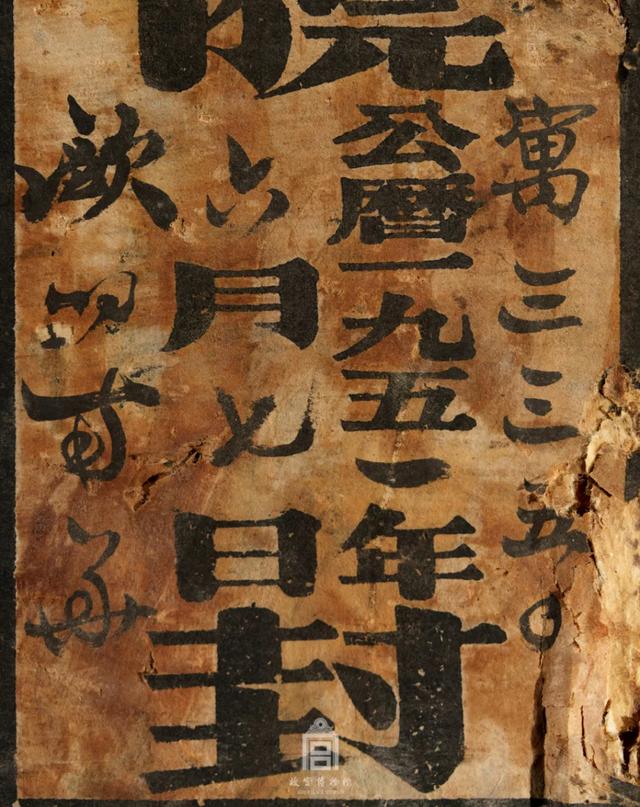 院
寓三三五〇
公曆一九五一年
六月七日
封
故宫博物院